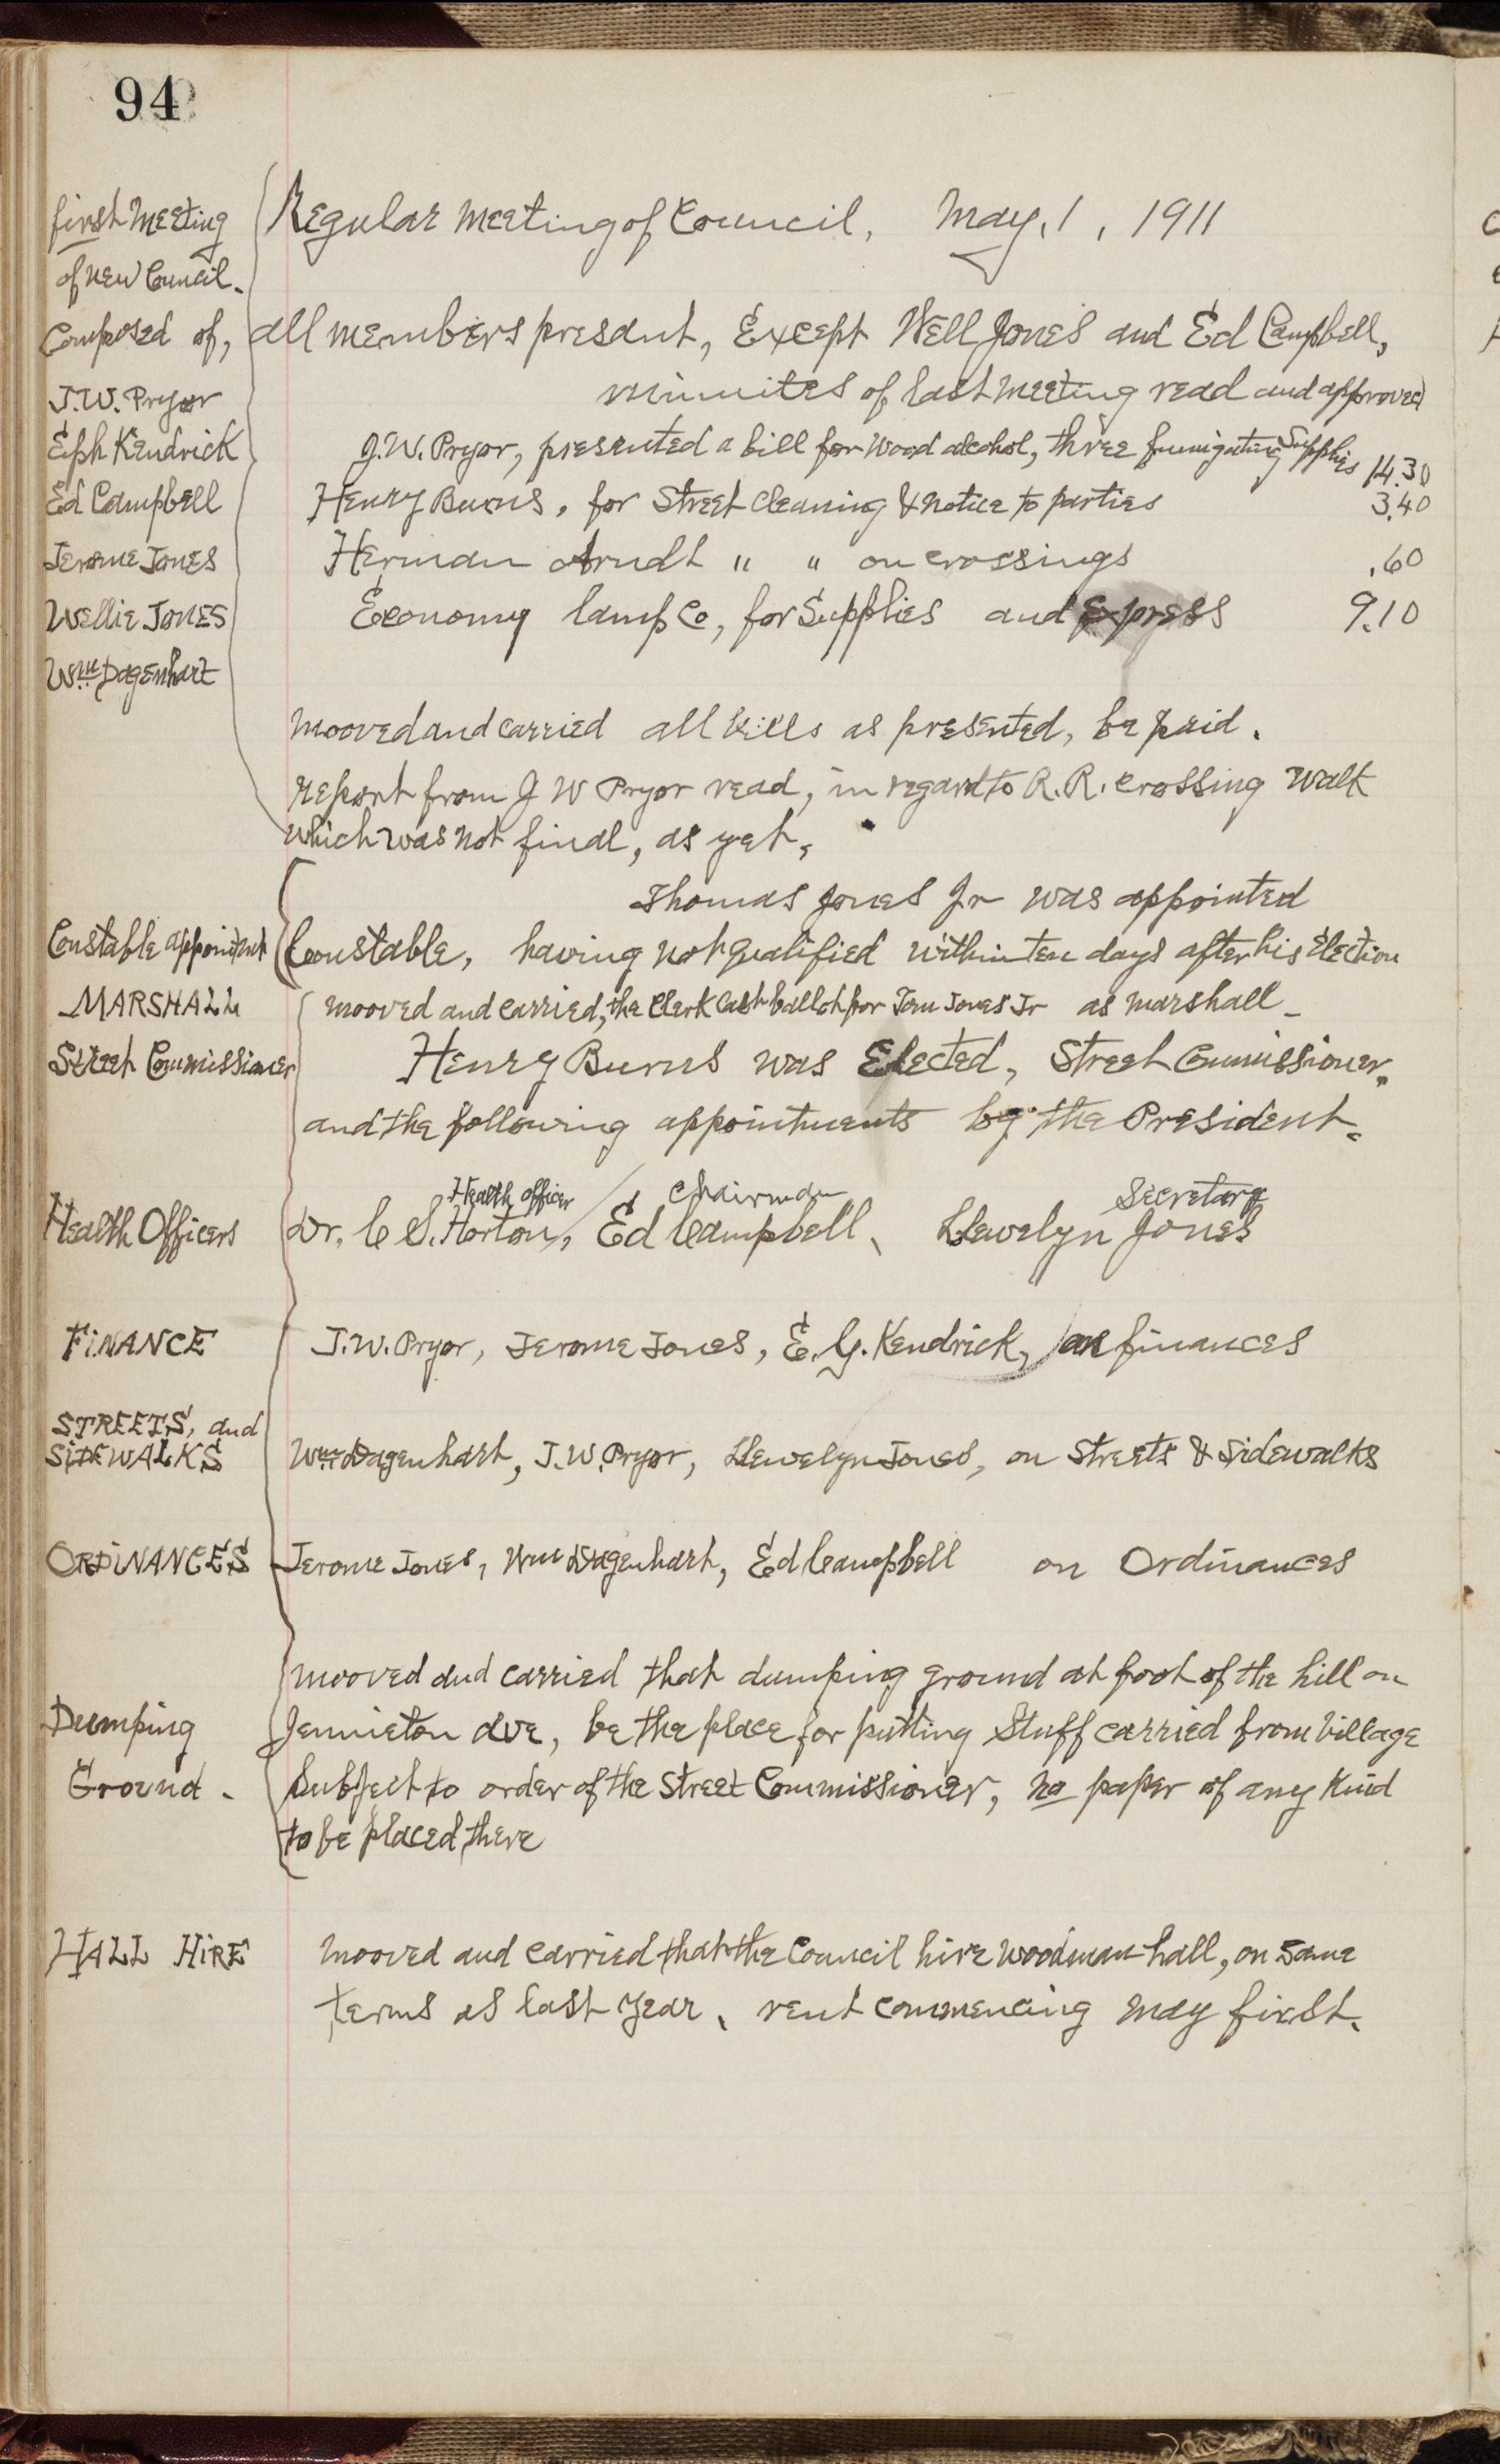 94
first Meeting
of New Council.
Composed of,
J.W. Pryor
Eph Kendrick
Ed Campbell
Jerome Jones
Wellie Jones
Wm Dagenhart
Regular Meeting of Council, May, 1, 1911
all members presant, Except Well Jones and Ed Campbell,
minuites of last meeting read and approved
J.W. Pryor, presented a bill for Wood alcohol, three fumigating Supplies 14.30
Henry Burns, for Street Cleaning & Notice to parties 3.40
Herman Arndt " " on crossings .60
Economy lamp Co, for Supplies and Express 9.10
Mooved and carried all bills as presented, be paid.
Report from J W Pryor read, in regard to R.R. crossing walk
which was not final, as yet,
Thomas Jones Jr was appointed
Constable appointment
Constable, having not Qualified within ten days after his Election
MARSHALL
Mooved and carried, the Clerk cast ballot for Tom Jones Jr as marshall
Street Commissioner
Henry Burns was Elected, Street Commissioner,
and the following appointments by the President.
Health officer Chairman Secretary
Health Officers
Dr. C S. Horton, Ed Campbell, Llewelyn Jones
FINANCE
J.W. Pryor, Jerome Jones, E.G. Kendrick, on finances
STREETS, and
SIDEWALKS
Wm Dagenhart, J.W. Pryor, Llewelyn Jones, on Streets & Sidewalks
ORDINANCES
Jerome Jones, Wm Dagenhart, Ed Campbell on Ordinances
Mooved and carried that dumping ground at foot of the hill on
Dumping
Jennieton Ave, be the place for putting Stuff carried from Village
Ground.
Subject to order of the Street Commissioner, no paper of any kind
to be placed there
HALL HIRE
Mooved and carried that the Council hire Woodman hall, on same
terms as last year, rent commencing May first.